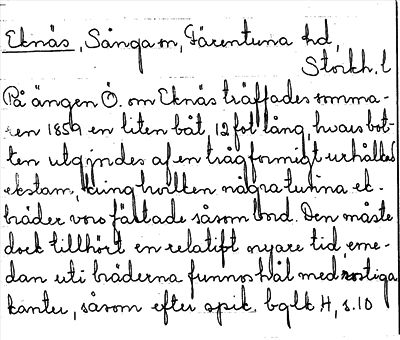 Eknäs, Sånga sn, Färentuna hd,
Stockh. l
På ängen Ö. om Eknäs träffades somma-
ren 1859 en liten båt, 12 fot lång, hvars bot-
ten utgjordes af en trågformigt urhålkad
ekstam, kring hvilken några tunna ek-
bräder voro fästade såsom bord. Den måste
dock tillhört en relatift nyare tid, eme-
dan uti bräderna funnos hål med rostiga
kanter, såsom efter spik. bglk H, s. 10